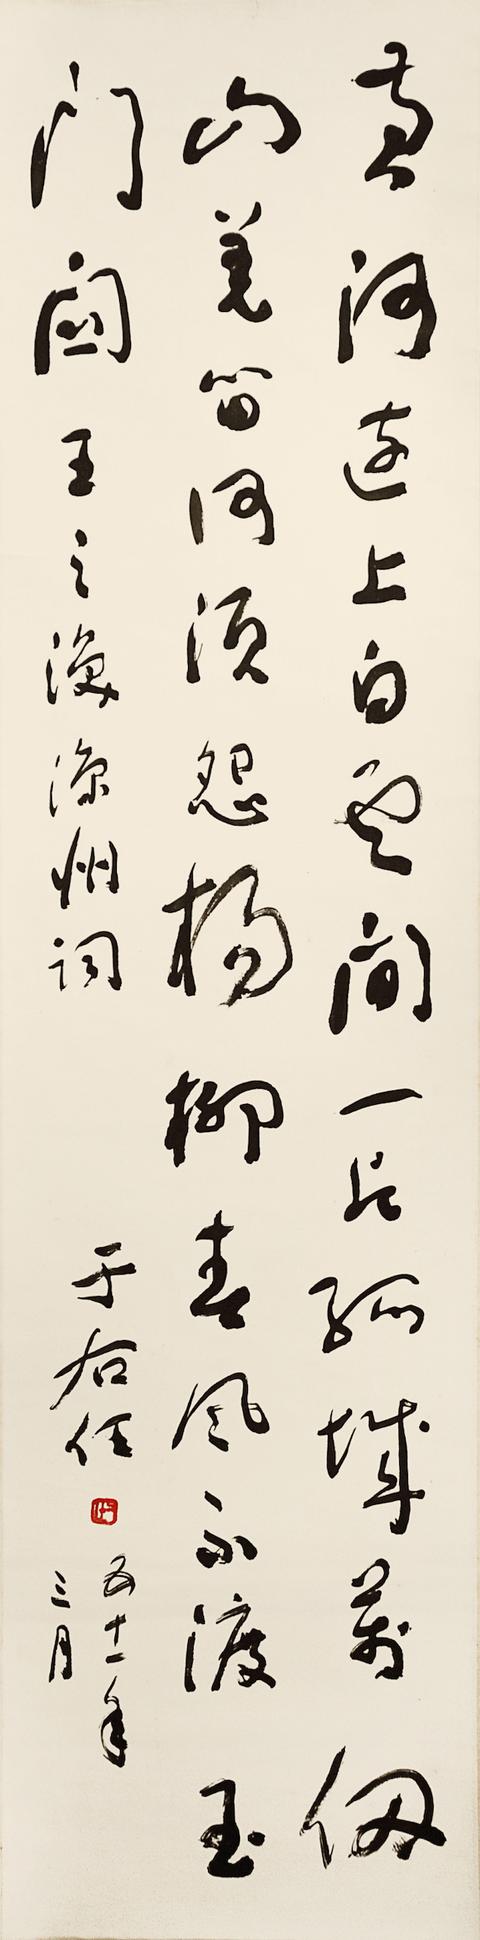 黄河遠上白雲間一片孤城萬仞
山羌笛何須怨楊柳春風不渡玉
门関王之渙涼州詞
于右任
五十一年
三月